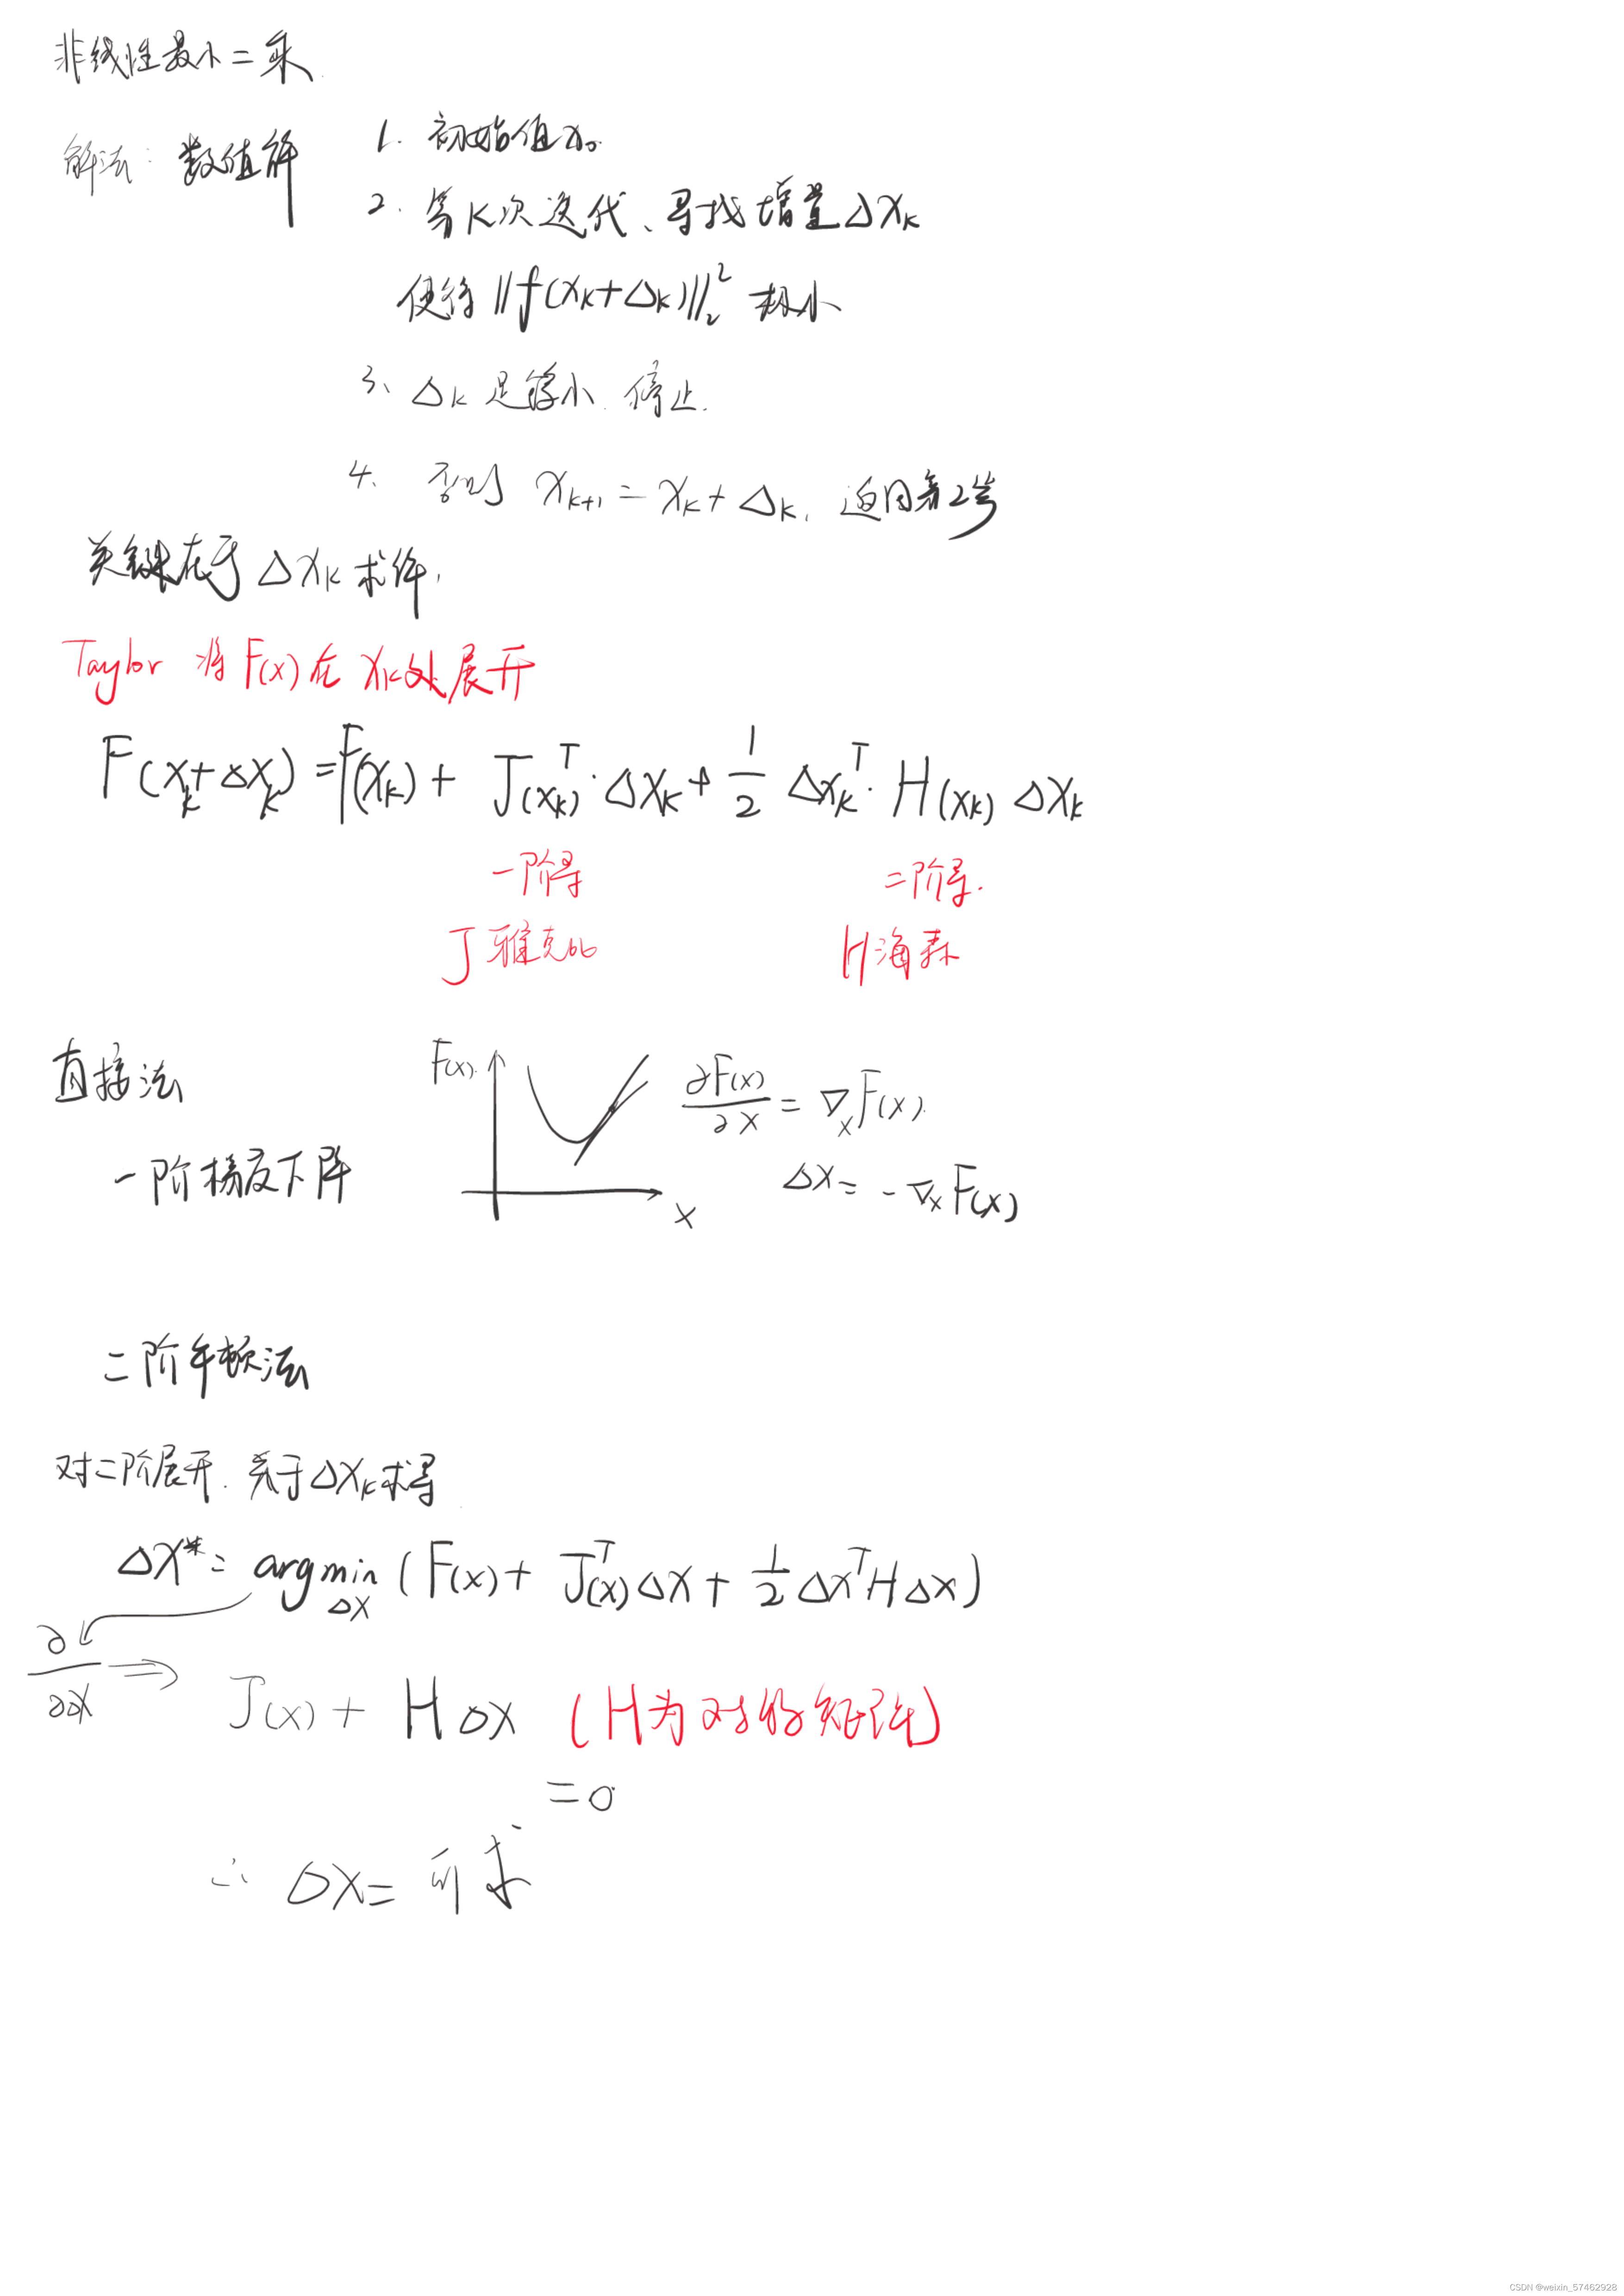 非线性最小二乘
解法：数值解
1. 初始值x₀
2. 第K次迭代、寻找增量ΔXₖ
使得||f(xₖ+Δₖ)||₂² 极小
3、Δₖ 足够小 停止.
4、否则 Xₖ₊₁ = Xₖ + Δₖ, 返回第2步
关键在于ΔXₖ求解,
Taylor 将F(x)在Xₖ处展开
F(Xₖ+ΔXₖ) = F(Xₖ) + J(Xₖ)ᵀ·ΔXₖ + 1/2 ΔXₖᵀ·H(Xₖ)ΔXₖ
一阶导 二阶导.
J 雅克比 H海森
直接法
一阶梯度下降
F(x)
x
∂F(x)/∂x = ∇ₓF(x).
ΔX = -∇ₓF(x)
二阶牛顿法
对二阶展开. 关于ΔXₖ求导
ΔX* = argmin_ΔX (F(x) + J(x)ᵀΔX + 1/2 ΔXᵀHΔX)
∂/∂ΔX ⇒ J(x) + HΔX (H为对称矩阵)
=0
∴ ΔX = 可求
CSDN @weixin_57462928